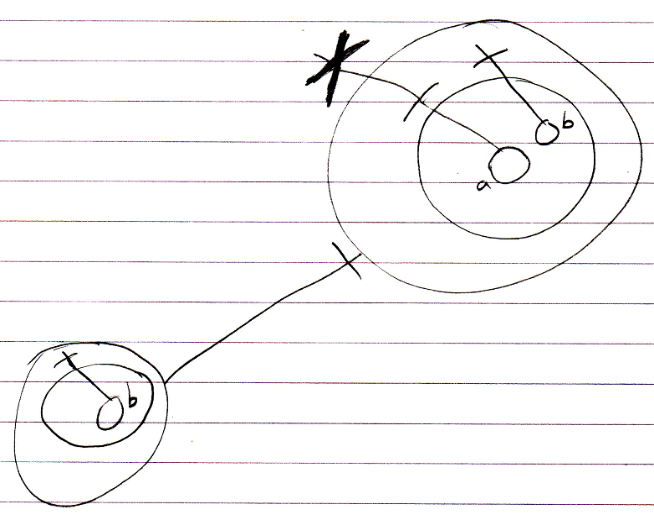 b
a
b